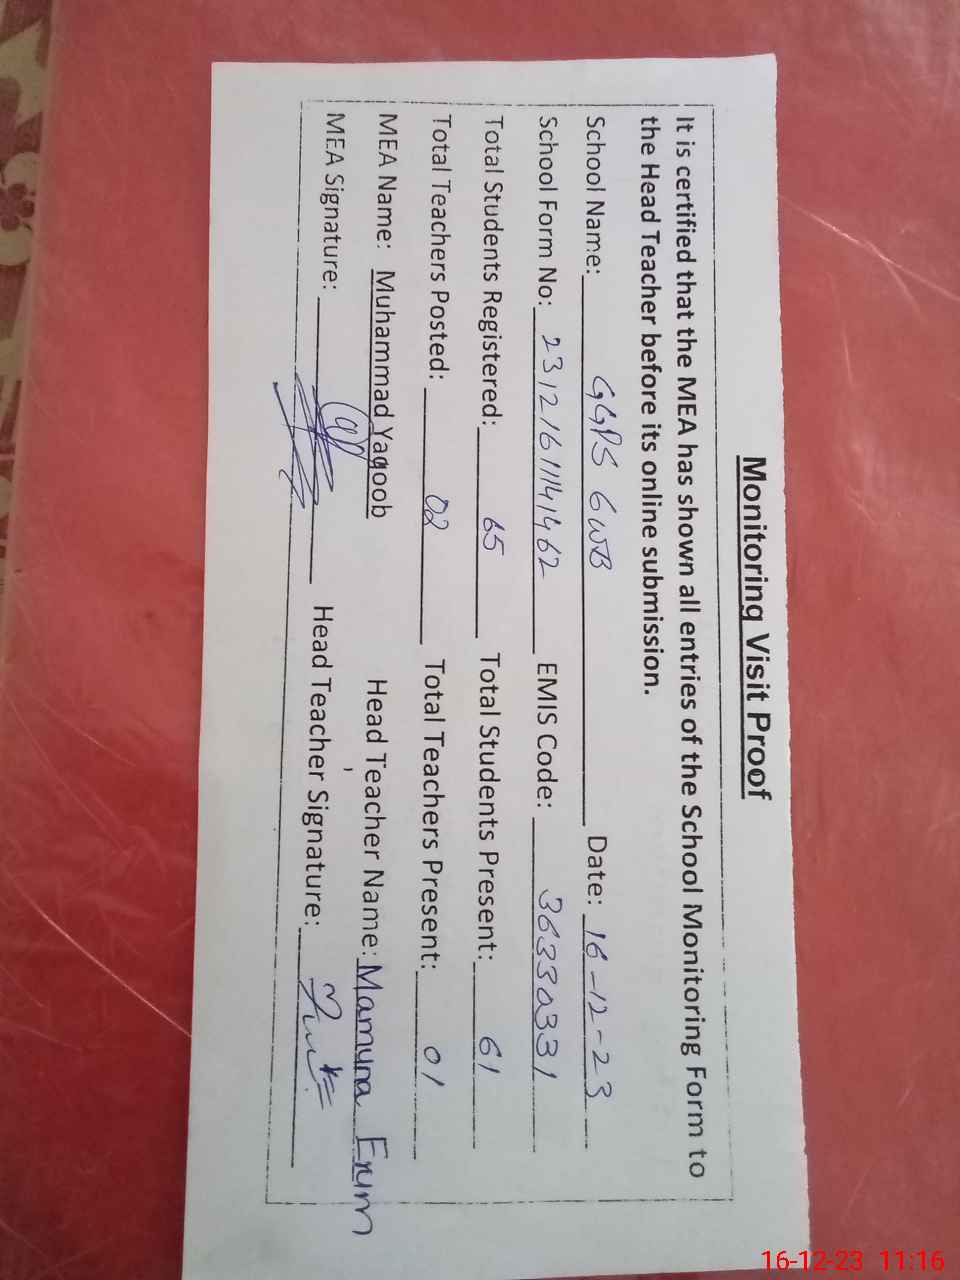 Monitoring Visit Proof
It is certified that the MEA has shown all entries of the School Monitoring Form to
the Head Teacher before its online submission.
School Name: GGPS 6WB Date: 16-12-23
School Form No: 23121611141462 EMIS Code: 36330331
Total Students Registered: 65 Total Students Present: 61
Total Teachers Posted: 02 Total Teachers Present: 01
MEA Name: Muhammad Yaqoob Head Teacher Name: Mamuna Erum
MEA Signature: Head Teacher Signature:
16-12-23 11:16